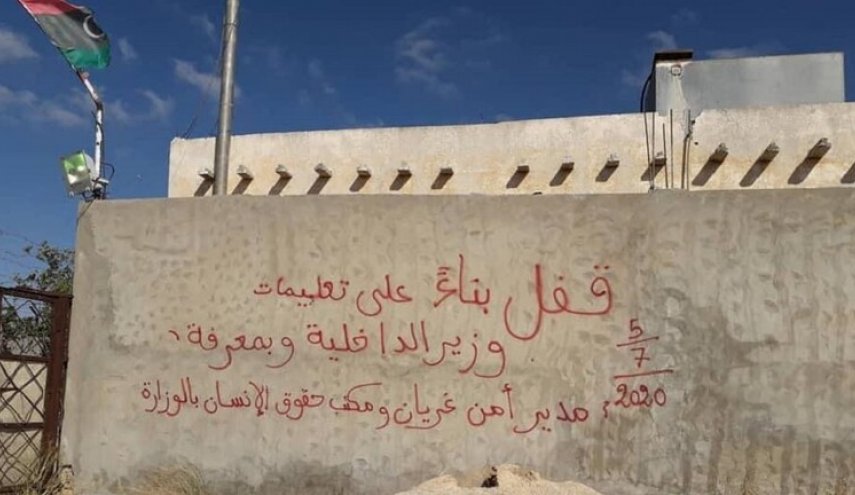 قفل بناءً على تعليمات
وزير الداخلية وبمعرفة
مدير أمن غريان ومكتب حقوق الإنسان بالوزارة
5
7
2020